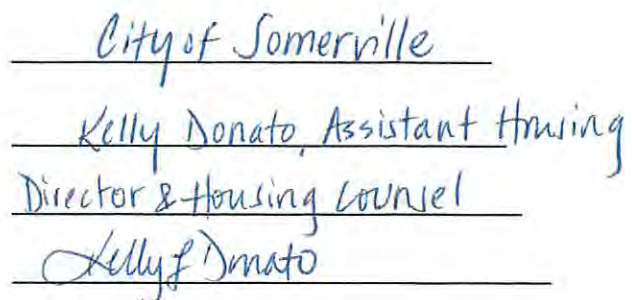 City of Somerville
Kelly Donato, Assistant Housing
Director & Housing Counsel
Kelly L Donato